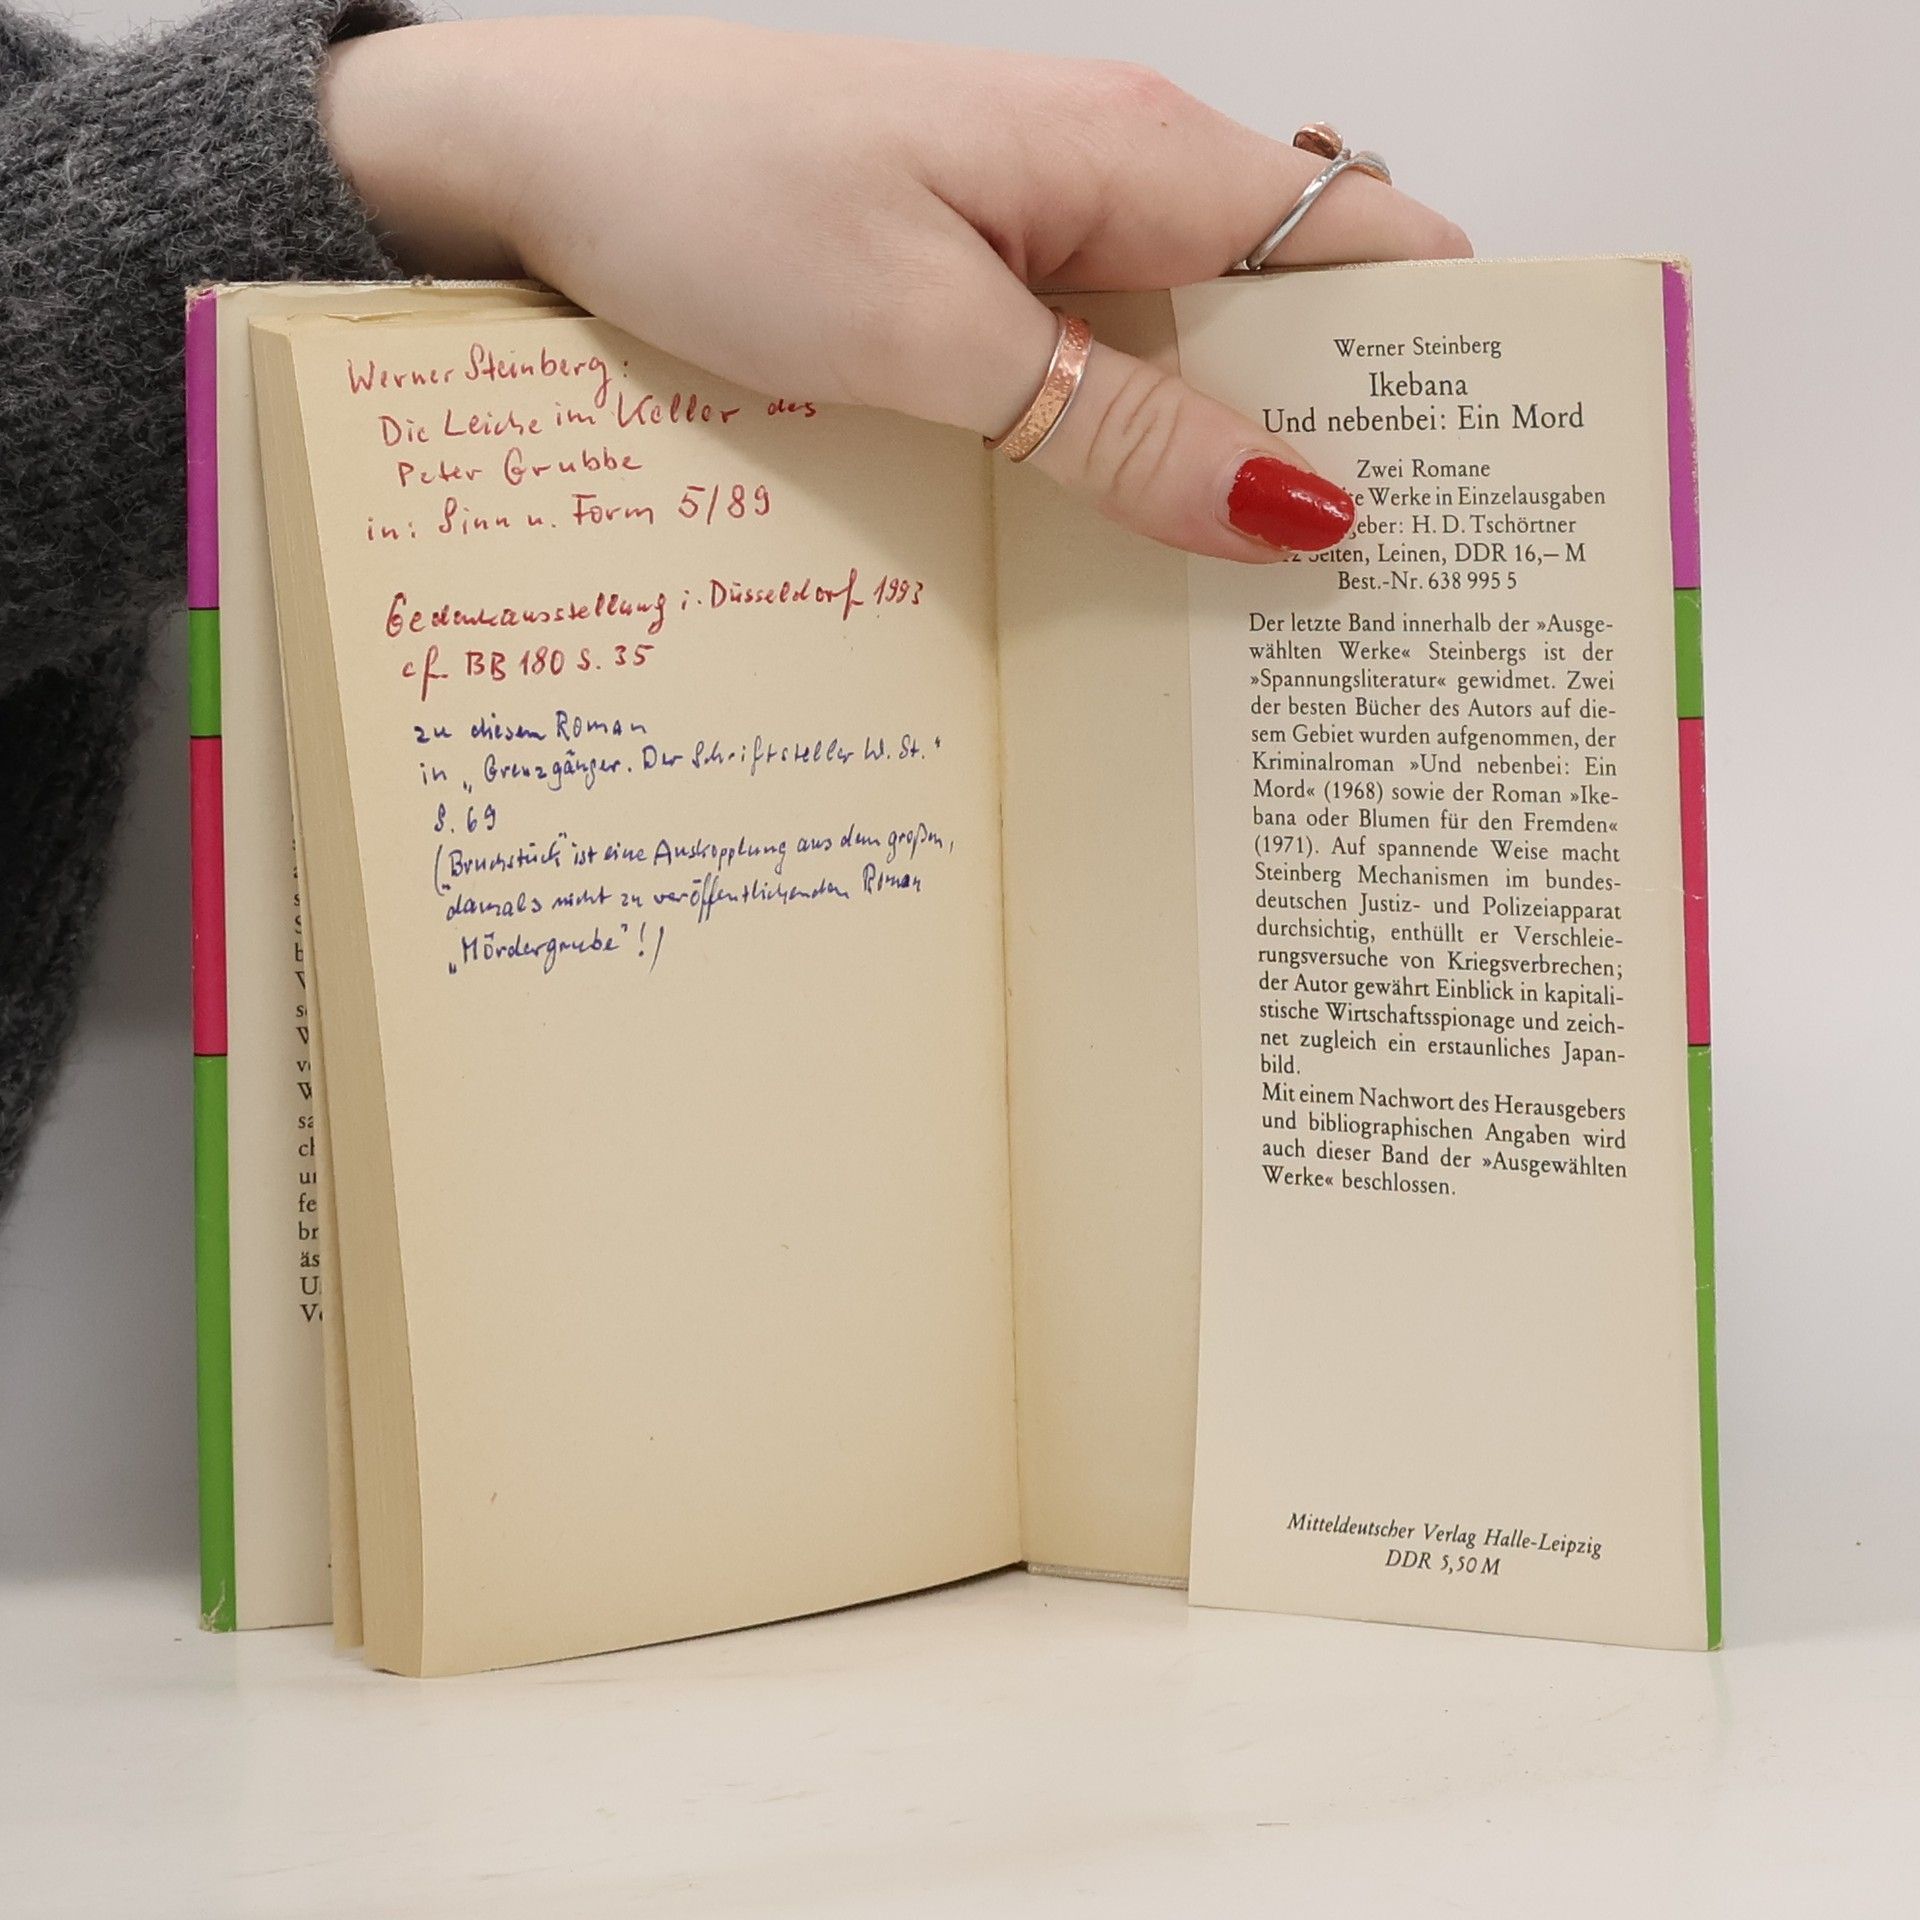 Werner Steinberg:
Die Leiche im Keller des
Peter Grubbe
in: Sinn u. Form 5/89
Gedenkausstellung i. Düsseldorf 1993
cf. BB 180 S. 35
zu diesem Roman
in „Grenzgänger. Der Schriftsteller W. St."
S. 69
(„Bruchstück" ist eine Auskopplung aus dem großen,
damals nicht zu veröffentlichenden Roman
„Mördergrube"!)
s
S
b
V
se
V
ve
W
sa
ch
un
fe
br
äs
U
Ve
Werner Steinberg
Ikebana
Und nebenbei: Ein Mord
Zwei Romane
te Werke in Einzelausgaben
geber: H. D. Tschörtner
Seiten, Leinen, DDR 16,– M
Best.-Nr. 638 995 5
Der letzte Band innerhalb der »Ausge-
wählten Werke« Steinbergs ist der
»Spannungsliteratur« gewidmet. Zwei
der besten Bücher des Autors auf die-
sem Gebiet wurden aufgenommen, der
Kriminalroman »Und nebenbei: Ein
Mord« (1968) sowie der Roman »Ike-
bana oder Blumen für den Fremden«
(1971). Auf spannende Weise macht
Steinberg Mechanismen im bundes-
deutschen Justiz- und Polizeiapparat
durchsichtig, enthüllt er Verschleie-
rungsversuche von Kriegsverbrechen;
der Autor gewährt Einblick in kapitali-
stische Wirtschaftsspionage und zeich-
net zugleich ein erstaunliches Japan-
bild.
Mit einem Nachwort des Herausgebers
und bibliographischen Angaben wird
auch dieser Band der »Ausgewählten
Werke« beschlossen.
Mitteldeutscher Verlag Halle-Leipzig
DDR 5,50 M